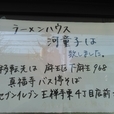 ラーメンハウス
河童子は
致しました。
移転先は 麻生区下麻生968
真福寺バス停そば
セブンイレブン 王禅寺東4丁目店前